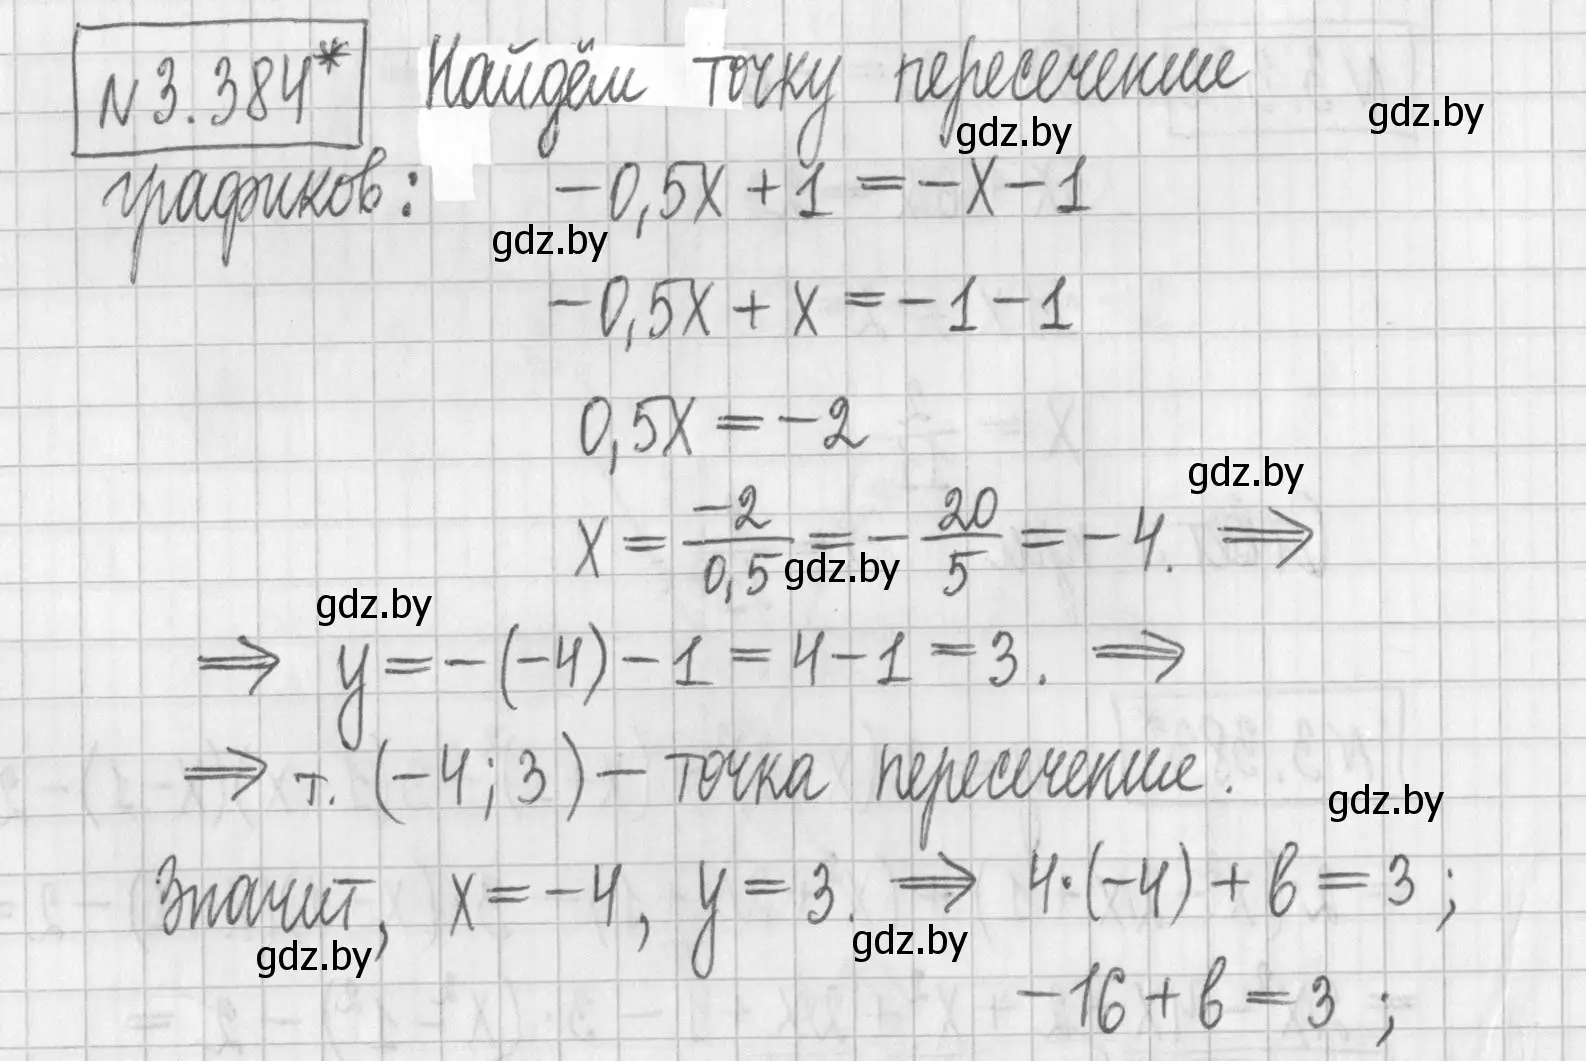 N3.384* Найдём точку пересечения
графиков: -0,5x + 1 = -x - 1
-0,5x + x = -1 - 1
0,5x = -2
x = -2/0,5 = -20/5 = -4. ⇒
⇒ y = -(-4) - 1 = 4 - 1 = 3. ⇒
⇒ т. (-4; 3) - точка пересечения.
Значит, x = -4, y = 3. ⇒ 4·(-4) + в = 3;
-16 + в = 3;
gdz.by
gdz.by
gdz.by
gdz.by
gdz.by
gdz.by
gdz.by
gdz.by
gdz.by